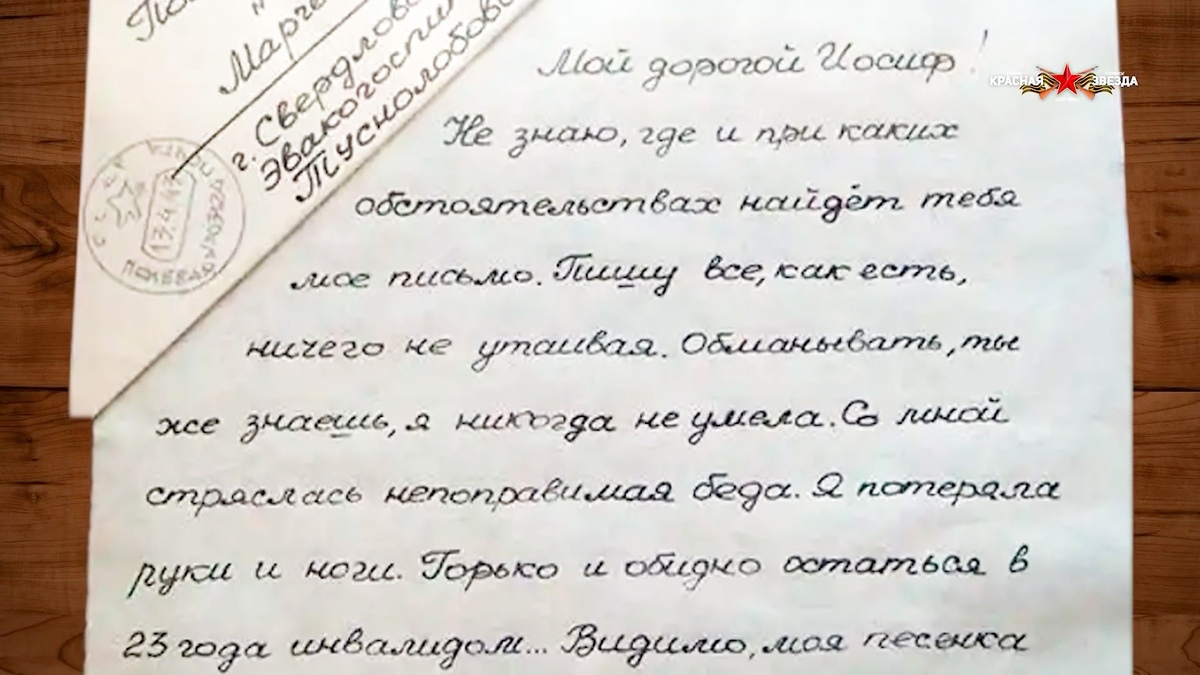 г. Свердловс
Эвакогоспит
Туснолобово
13.4.43
ПОЛЕВАЯ
КРАСНАЯ ЗВЕЗДА
Мой дорогой Иосиф!
Не знаю, где и при каких
обстоятельствах найдёт тебя
мое письмо. Пишу все, как есть,
ничего не утаивая. Обманывать, ты
же знаешь, я никогда не умела. Со мной
стряслась непоправимая беда. Я потеряла
руки и ноги. Горько и обидно остаться в
23 года инвалидом... Видимо, моя песенка